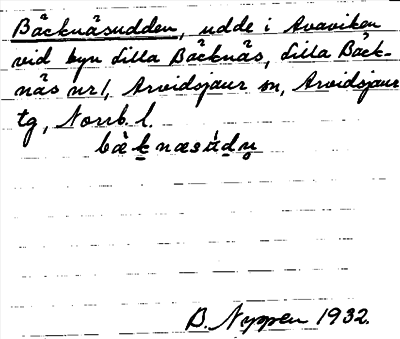 Bäcknäsudden, udde i Avaviken
vid byn Lilla Bäcknäs, Lilla Bäck-
näs nr 1, Arvidsjaur sn, Arvidsjaur
tg, Norrb. l.
B. Nyppen 1932.